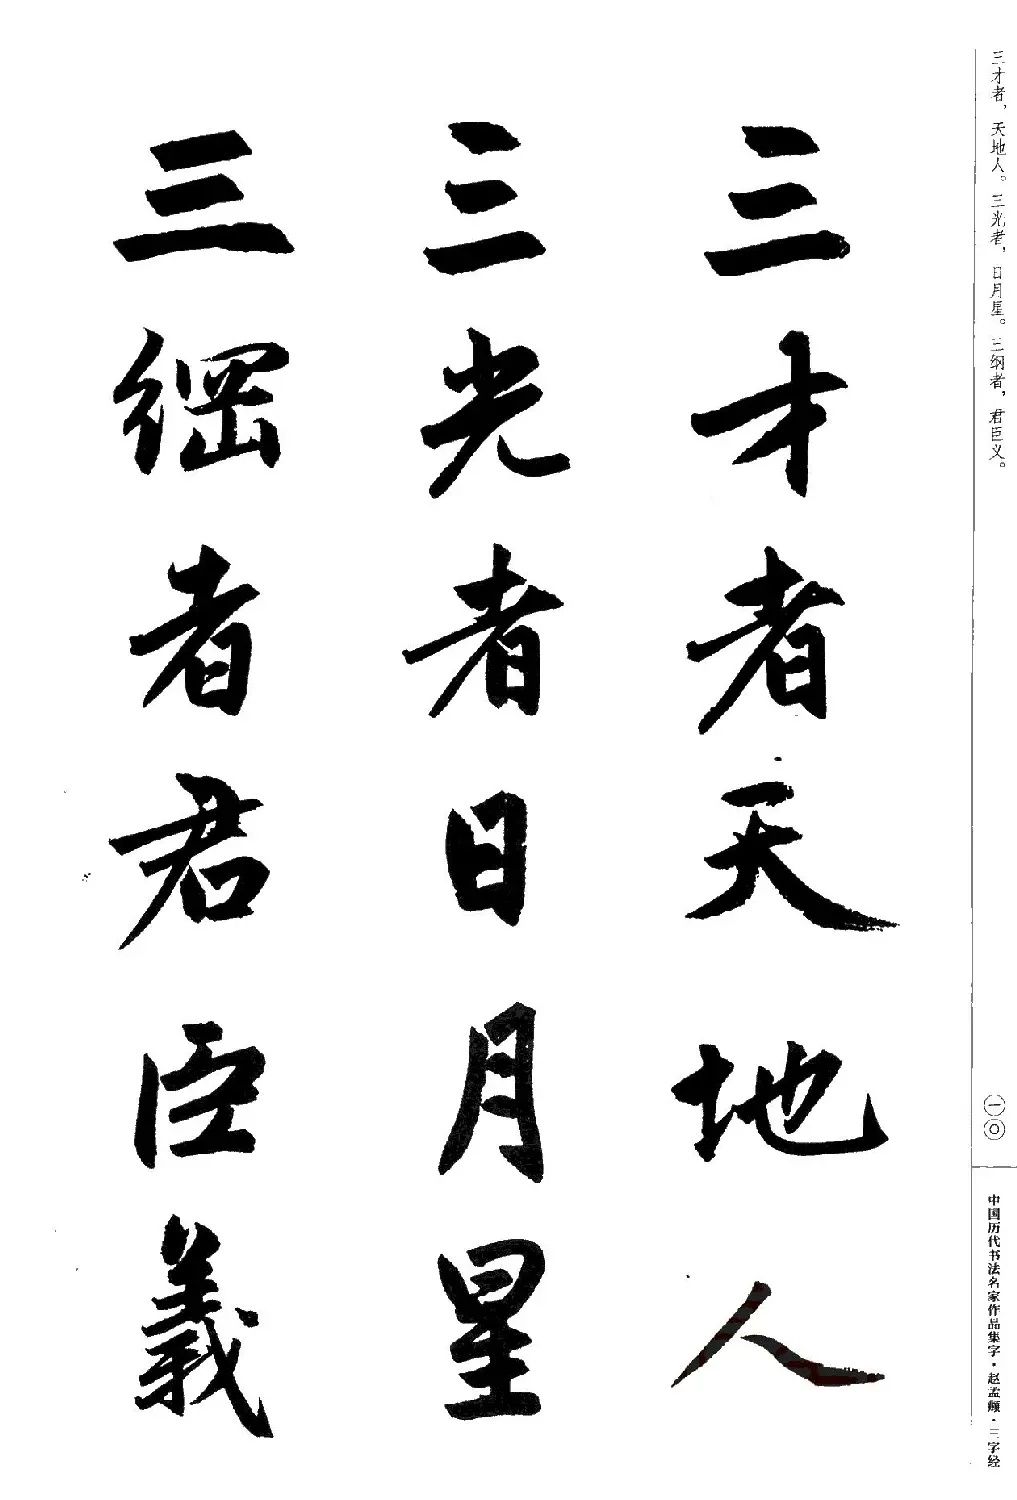 三才者，天地人。三光者，日月星。三纲者，君臣义。
三才者天地人
三光者日月星
三綱者君臣義
一〇
中国历代书法名家作品集字·赵孟頫·三字经